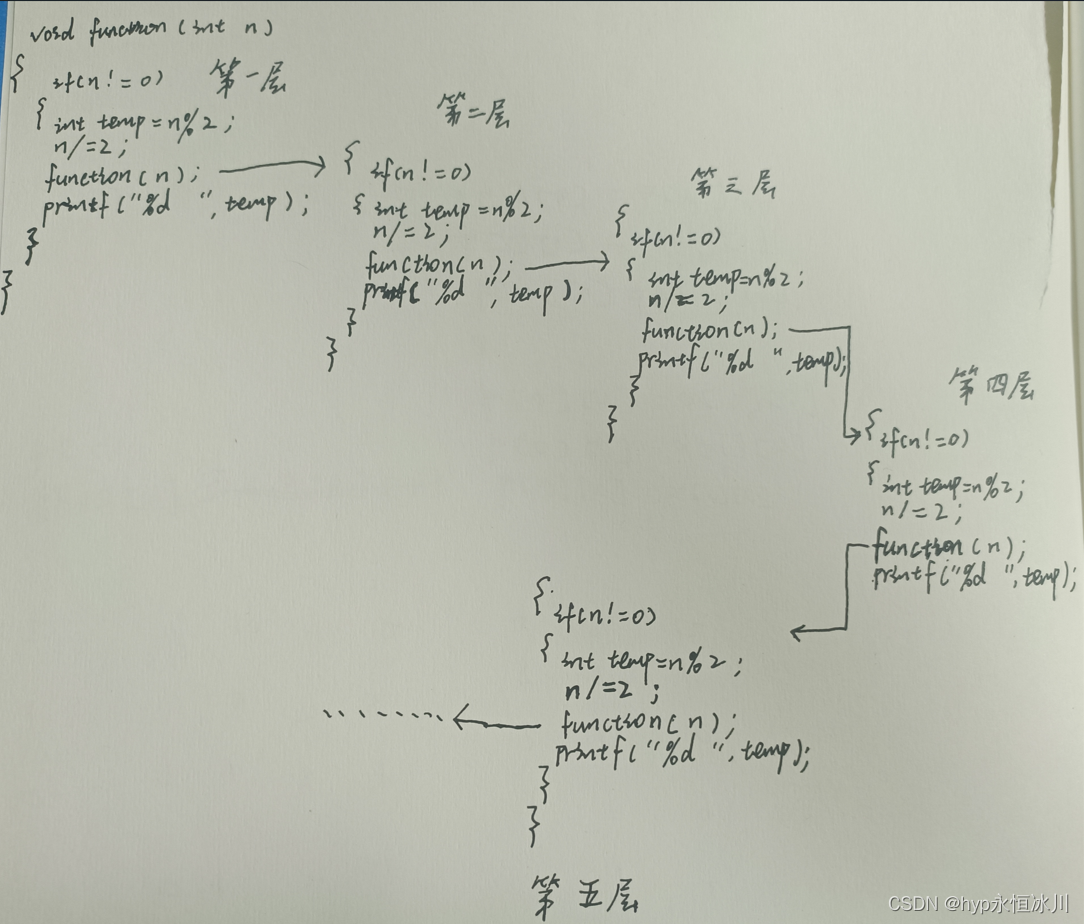 void function (int n)
{
if(n!=0)
第一层
{ int temp=n%2;
n/=2;
function(n);
printf("%d ",temp);
}
}
第二层
{ if(n!=0)
{ int temp=n%2;
n/=2;
function(n);
printf("%d ",temp);
}
}
第三层
{
if(n!=0)
{ int temp=n%2;
n/=2;
function(n);
printf("%d ",temp);
}
}
第四层
{ if(n!=0)
{ int temp=n%2;
n/=2;
function(n);
printf("%d ",temp);
{ if(n!=0)
{ int temp=n%2;
n/=2;
function(n);
printf("%d ",temp);
}
}
第五层
CSDN @hyp永恒冰川